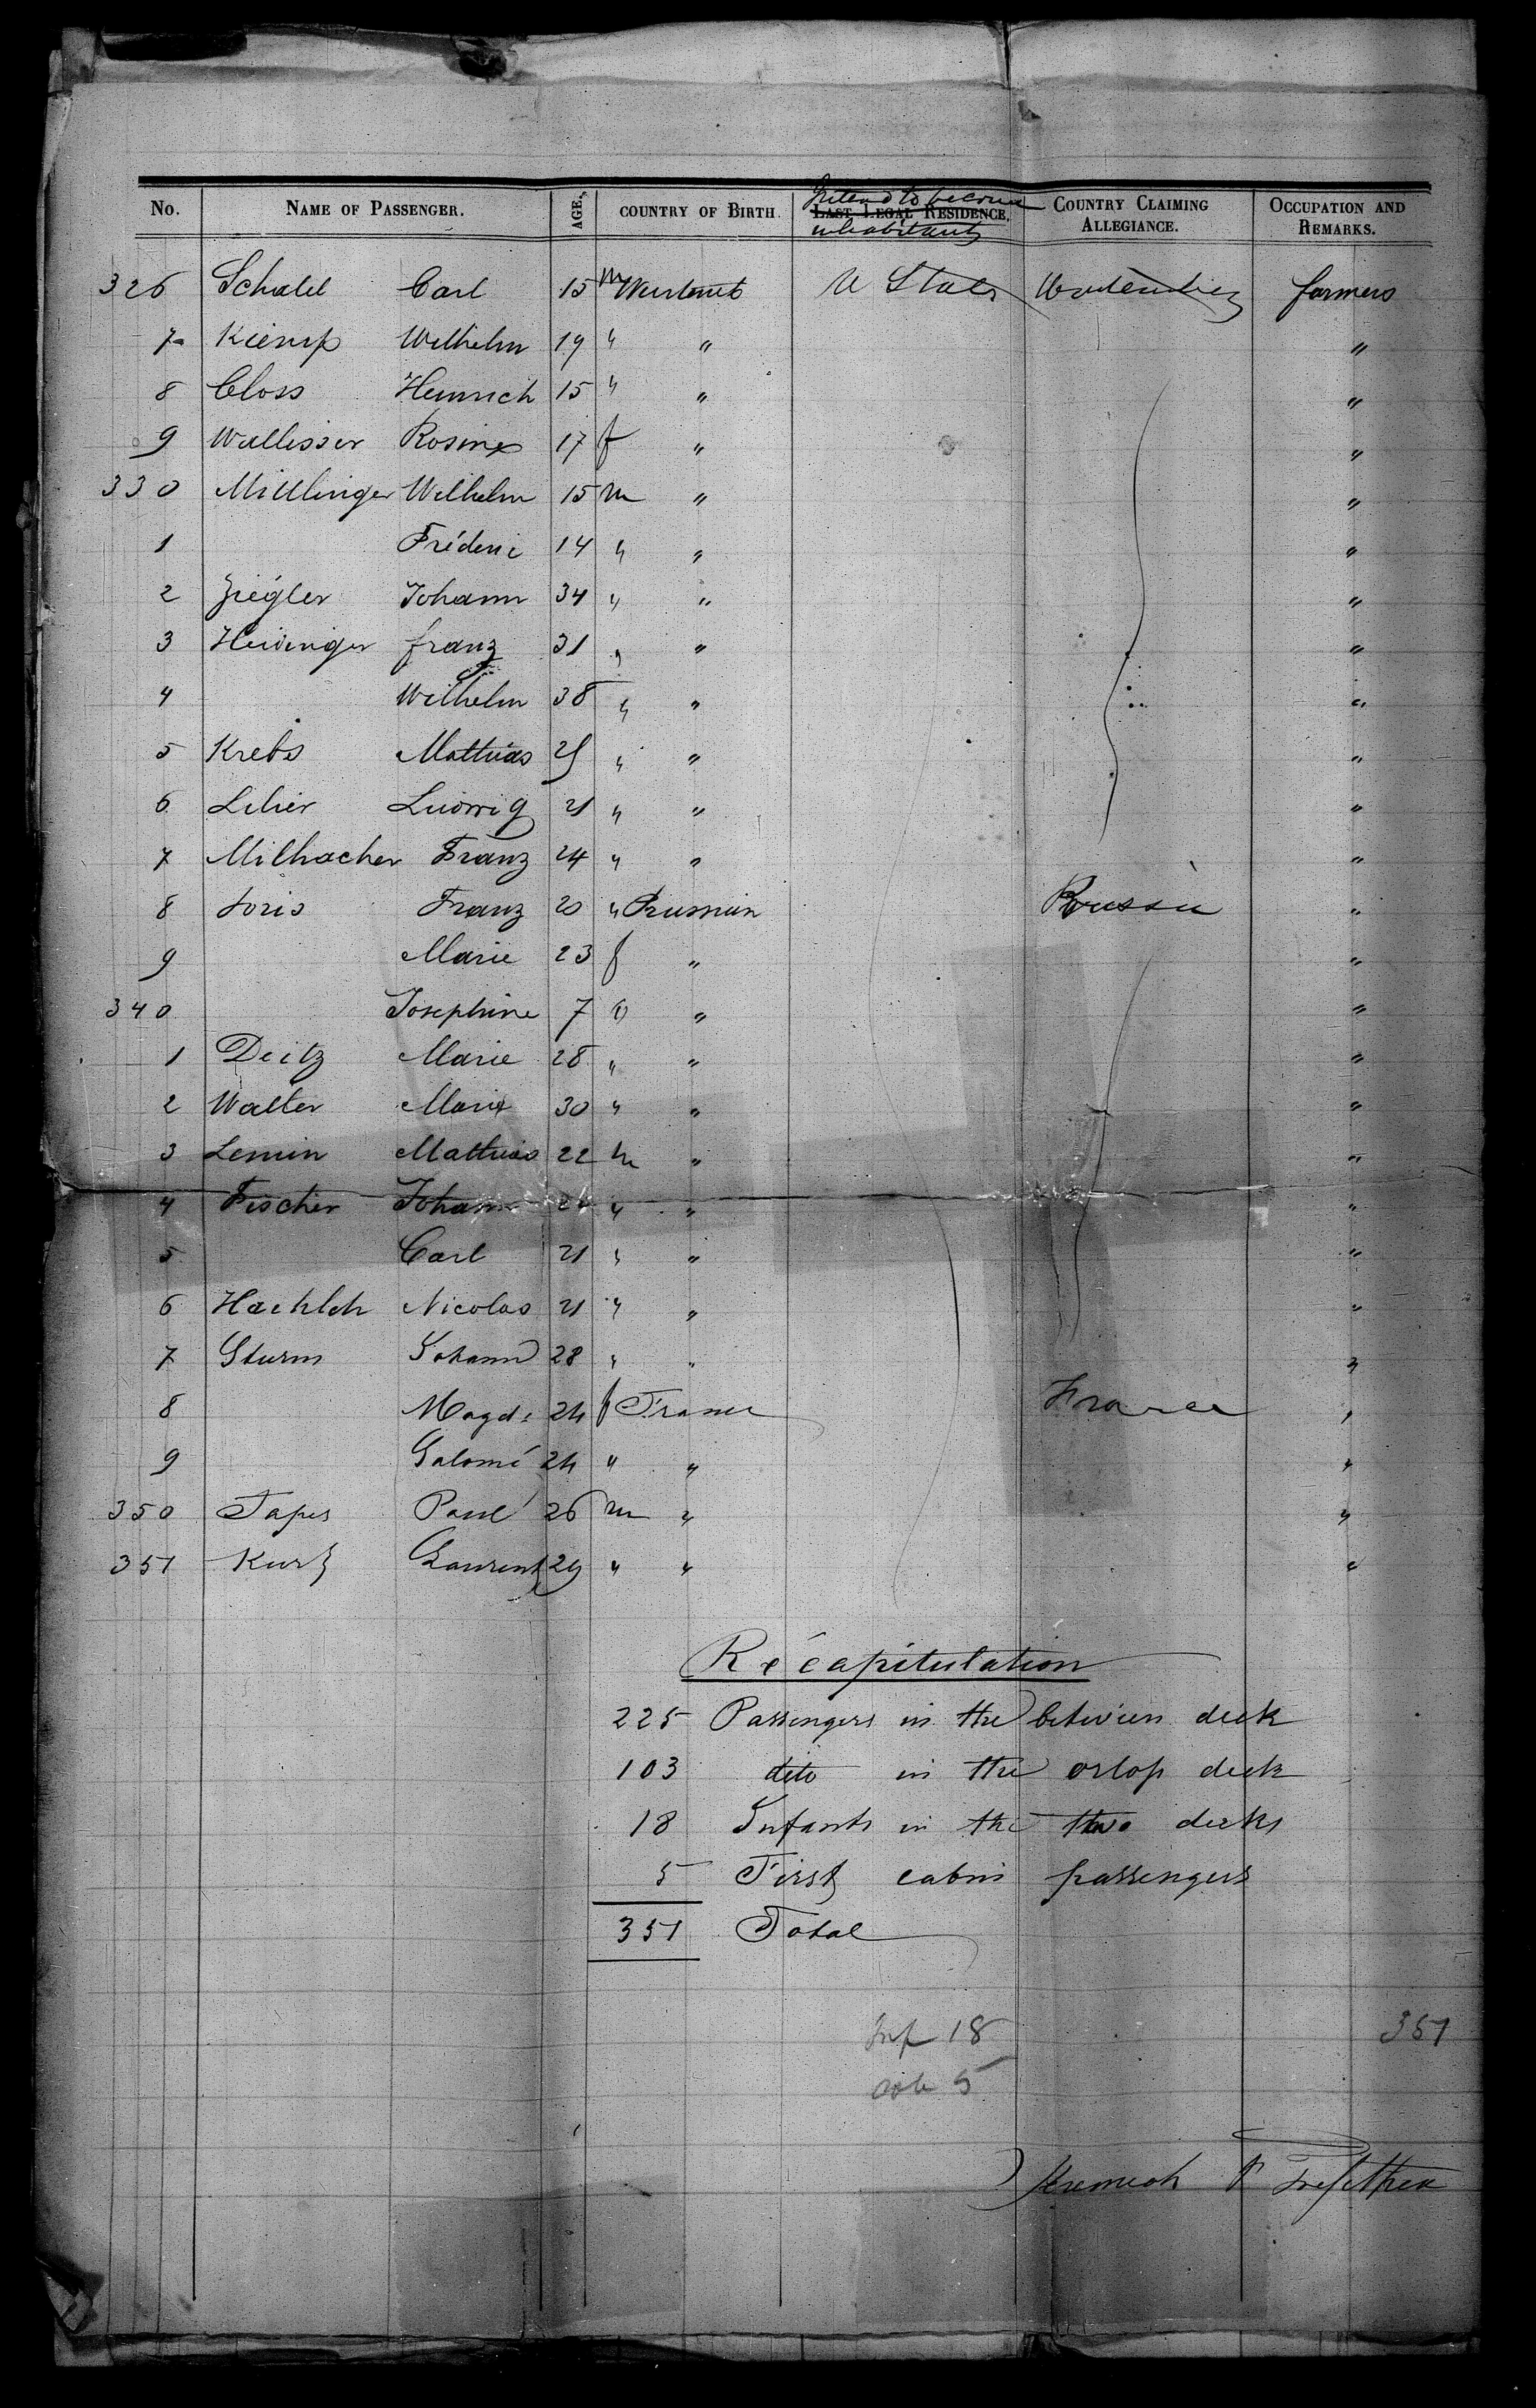 Intend to become
No. NAME OF PASSENGER. AGE. COUNTRY OF BIRTH. LAST LEGAL RESIDENCE. COUNTRY CLAIMING ALLEGIANCE. OCCUPATION AND REMARKS.
inhabitants
326 Carl 15 m U States farmers
7 Wilhelm 19 " " "
8 Closs Heinrich 15 " " "
9 Wallisser Rosine 17 f " "
330 Wilhelm 15 m " "
1 Fréderic 14 " " "
2 Ziégler Johann 34 " " "
3 franz 31 " " "
4 Wilhelm 38 " " "
5 Krebs Mathias " " "
6 Ludwig 21 " " "
7 Milbacher Franz 24 " " "
8 Joris Franz 20 " "
9 Marie 23 f " "
340 Josephine 7 " "
1 Deitz Marie 28 " " "
2 Walter Marie 30 " " "
3 Mathias 22 m " "
4 Fischer Johann " " "
5 Carl 21 " " "
6 Nicolas 21 " " "
7 Sturm Johann 28 " " "
8 Magd: 24 f France France "
9 Salomé 24 " " "
350 Paul 26 m " "
351 Kurtz Laurent 29 " " "
Récapitulation
225 Passengers in the between deck
103 dito in the orlop deck
18 Infants in the two decks
5 First cabin passengers
351 Total
Inf 18 351
5